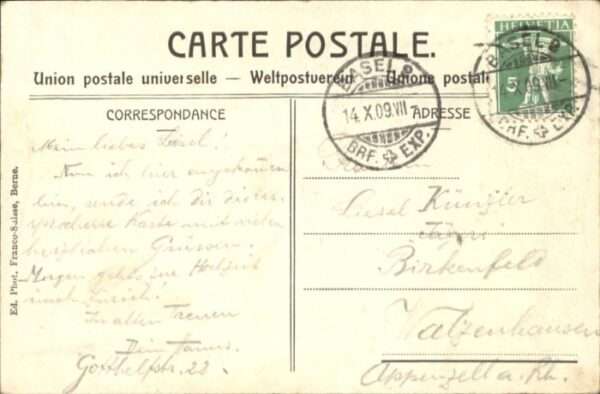 CARTE POSTALE.
Union postale universelle — Weltpostverein — Unione postale
HELVETIA
5
BASEL 2
14.X.09.VII
BRF. EXP.
BASEL 2
X.09.VII
BRF. EXP.
CORRESPONDANCE
ADRESSE
Mein liebes Liesel!
Nun ich hier angekommen
bin, sende ich dir die ver-
sprochene Karte mit vielen
herzlichen Grüssen.
Morgen geht's zur Hochzeit
nach Zürich!
In alter Treuen
Dein
Gotthelfstr. 22.
Ed. Phot. Franco-Suisse, Berne.
Liesel Künzler
Birkenfeld
Walzenhausen
Appenzell a. Rh.